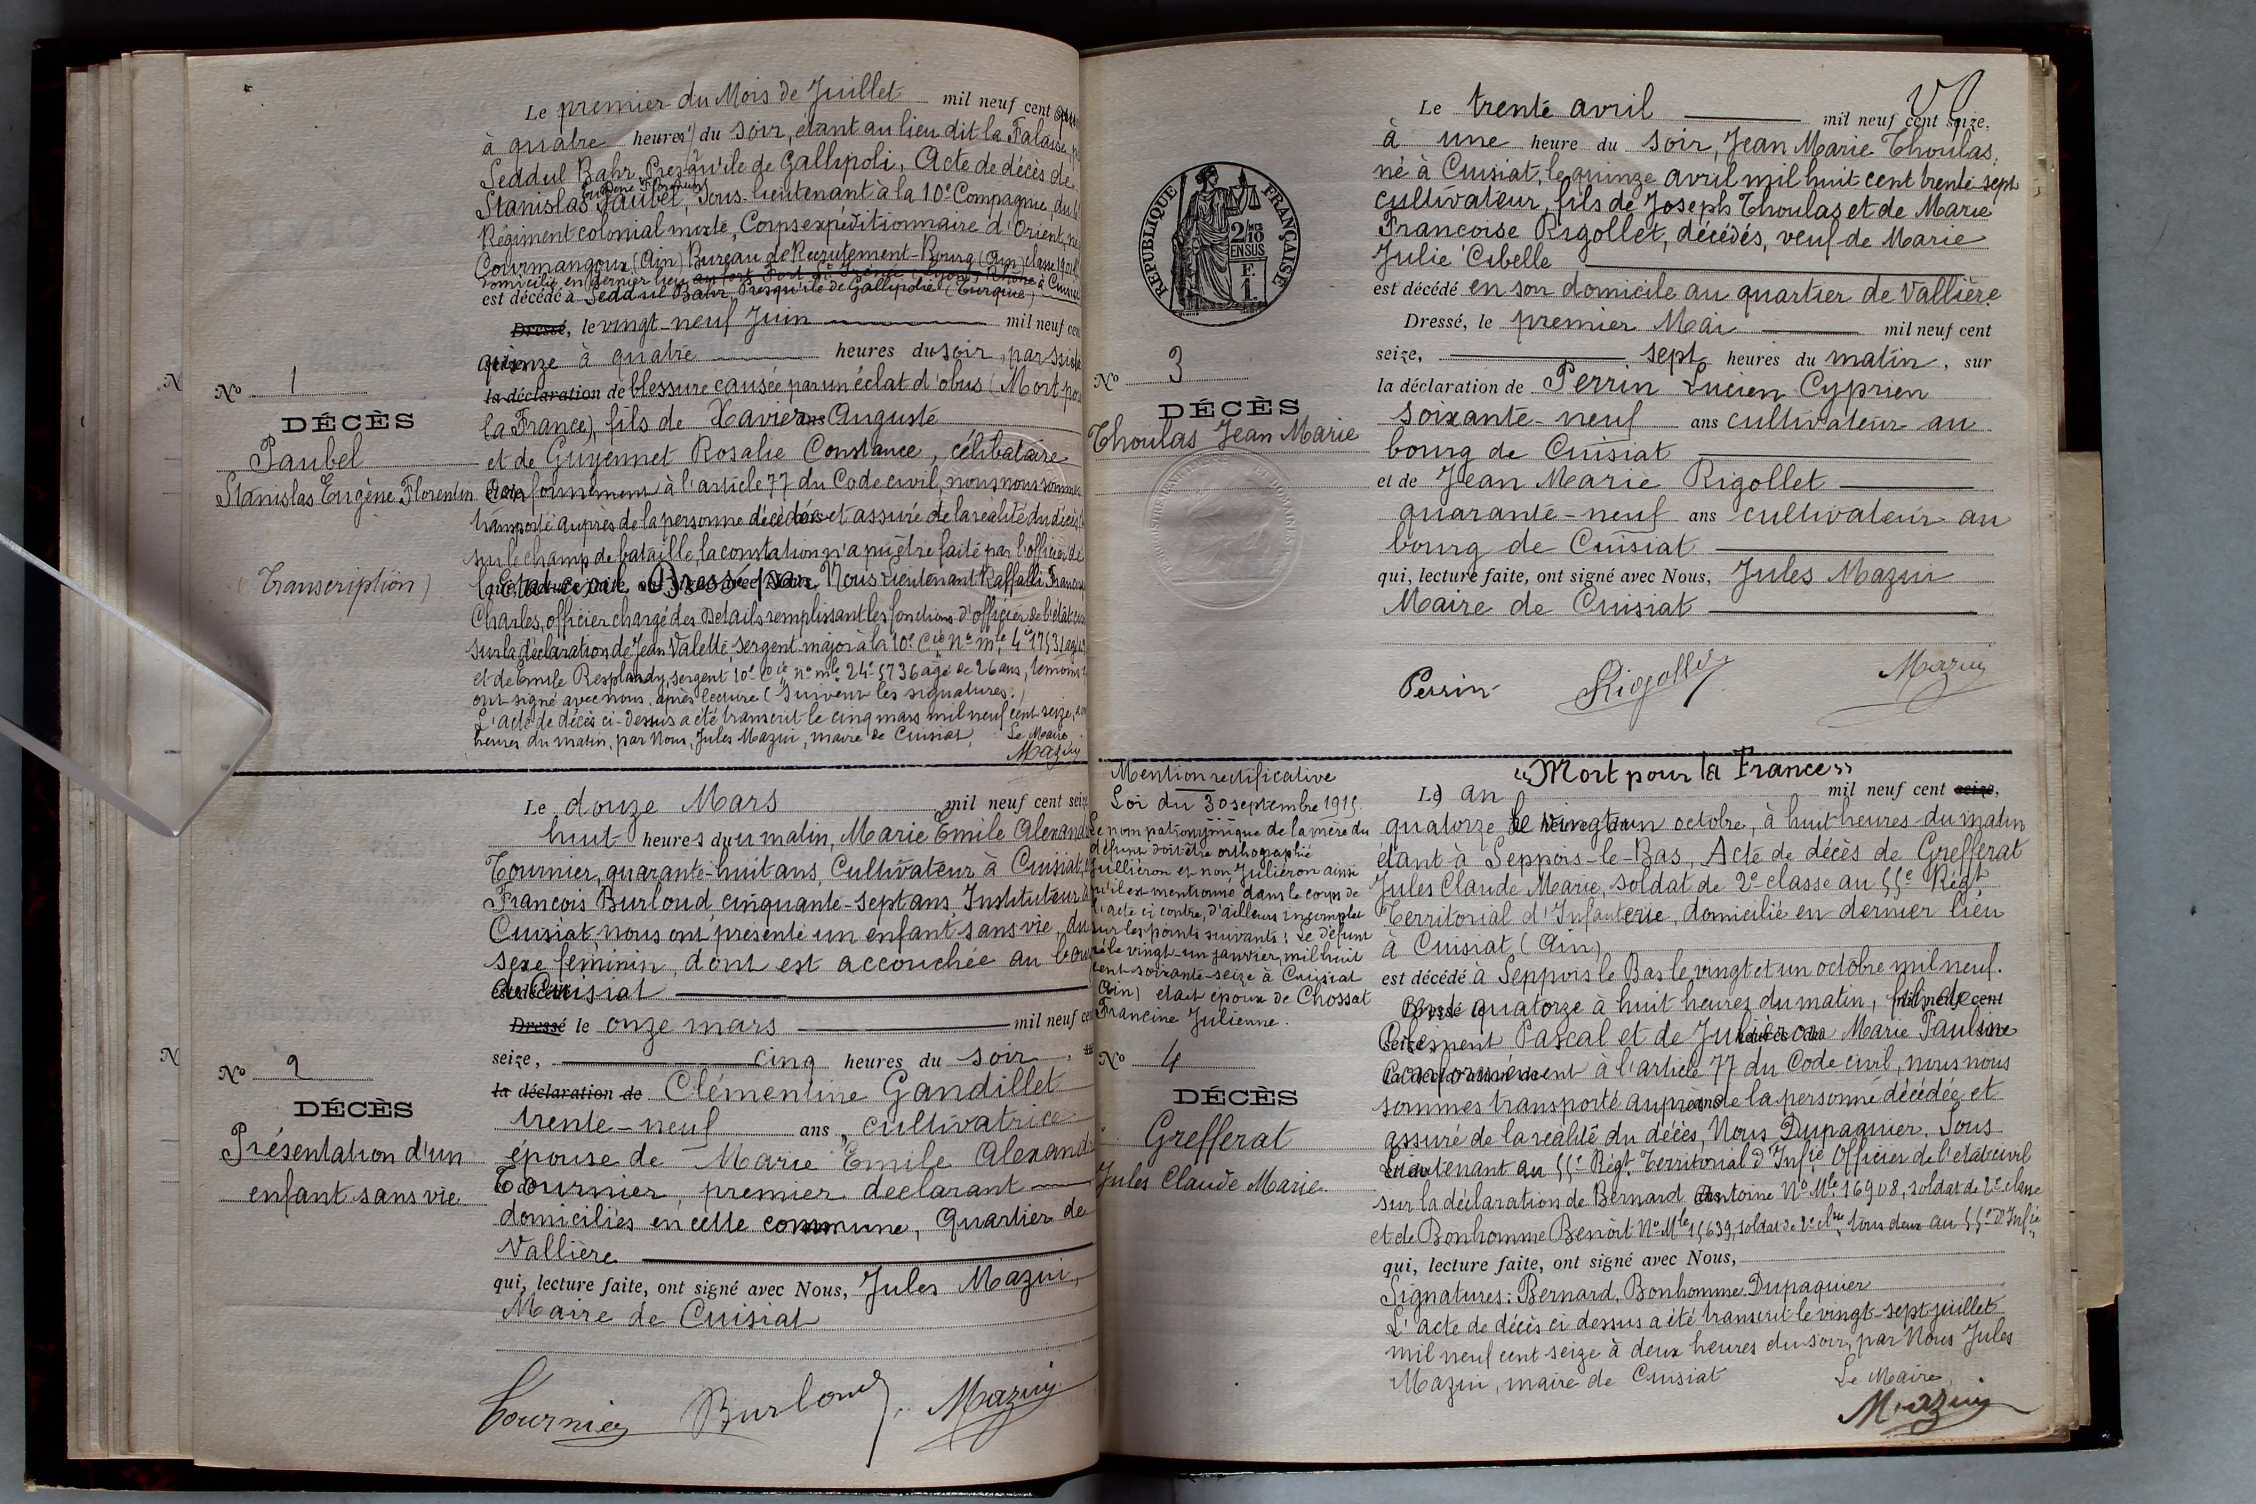 Le premier du Mois de Juillet mil neuf cent
à quatre heures du soir, étant au lieu dit la Falaise,
Seddul Bahr Presqu'ile de Gallipoli, Acte de décès de
Eugène Florentin
Stanislas Paubel, Sous-lieutenant à la 10e Compagnie du
Régiment colonial mixte, Corps expéditionnaire d'Orient, né
Courmangoux (Ain) Bureau de Recrutement-Bourg (Ain) classe
domicilié en dernier lieu au fort Fort St Irénée (Lyon) Rhône à Cuisiat
est décédé à Seddul Bahr Presqu'ile de Gallipolie (Turquie)
Dressé, le vingt-neuf Juin mil neuf cent
quinze à quatre heures du soir, par suite
la déclaration de blessure causée par un éclat d'obus (Mort pour
la France), fils de Xavier Auguste
et de Guyennet Rosalie Constance, célibataire
Conformément à l'article 77 du Code civil, nous nous sommes
transporté auprès de la personne décédée et assuré de la réalité du décès
sur le champ de bataille, la constation n'a pu être faite par l'officier de
l'Etat civil. Dressé par Nous Lieutenant Raffalli Francois
Charles, officier chargé des Détails remplissant les fonctions d'officier de l'état civil
sur la déclaration de Jean Valette, sergent major à la 10e Cie no mle
et de Emile Resplandy, sergent 10e Cie no mle 24-5736 agé de 26 ans, témoins
ont signé avec nous, après lecture (Suivent les signatures.)
L'acte de décès ci-dessus a été transcrit le cinq mars mil neuf cent seize,
heures du matin, par Nous, Jules Mazui, maire de Cuisiat, Le Maire
Mazuy
No 1
DÉCÈS
Paubel
Stanislas Eugène Florentin
(Transcription)
Le douze Mars mil neuf cent seize
huit heures du matin, Marie Emile Alexandre
Tournier, quarante-huit ans, Cultivateur à Cuisiat,
François Burloud cinquante-sept ans Instituteur
Cuisiat, nous ont présenté un enfant sans vie, du
sexe féminin, dont est accouchée au bourg
de Cuisiat
Dressé le onze mars mil neuf cent
seize, cinq heures du soir
la déclaration de Clémentine Gandillet
trente-neuf ans, cultivatrice
épouse de Marie Emile Alexandre
Tournier, premier déclarant
domiciliés en cette commune, quartier de
Vallière
qui, lecture faite, ont signé avec Nous, Jules Mazui,
Maire de Cuisiat
Tournier Burloud Mazuy
No 2
DÉCÈS
Présentation d'un
enfant sans vie
Le trente avril mil neuf cent seize,
à une heure du soir, Jean Marie Thoulas,
né à Cuisiat, le quinze avril mil huit cent trente sept
cultivateur, fils de Joseph Thoulas et de Marie
Francoise Rigollet, décédés, veuf de Marie
Julie Cibelle
est décédé en son domicile au quartier de Vallière
Dressé, le premier Mai mil neuf cent
seize, sept heures du matin, sur
la déclaration de Perrin Lucien Cyprien
soixante-neuf ans cultivateur au
bourg de Cuisiat
et de Jean Marie Rigollet
quarante-neuf ans cultivateur au
bourg de Cuisiat
qui, lecture faite, ont signé avec Nous, Jules Mazui
Maire de Cuisiat
Perrin Rigollet Mazuy
RÉPUBLIQUE FRANÇAISE
2/10 EN SUS
F. 1.
No 3
DÉCÈS
Thoulas Jean Marie
Mention rectificative
Loi du 30 septembre 1915.
Le nom patronymique de la mère du
défunt doit être orthographié
Jullièron et non Julièron ainsi
qu'il est mentionné dans le corps de
l'acte ci contre, d'ailleurs incomplet
sur les points suivants: Le défunt
né le vingt-un janvier, mil huit
cent-soixante-seize à Cuisiat
(Ain) était époux de Chossat
Francine Julienne.
No 4
DÉCÈS
Grefferat
Jules Claude Marie
"Mort pour la France"
L' an mil neuf cent seize,
quatorze le vingt-un octobre, à huit heures du matin
étant à Seppois-le-Bas, Acte de décès de Grefferat
Jules Claude Marie, soldat de 2e classe au 55e Régt
Territorial d'Infanterie, domicilié en dernier lieu
à Cuisiat (Ain)
est décédé à Seppois le Bas le vingt et un octobre mil neuf
cent quatorze à huit heures du matin, fils de
Clément Pascal et de Julièron Marie Pauline
Conformément à l'article 77 du Code civil, nous nous
sommes transporté auprès de la personne décédée et
assuré de la réalité du décès, Nous Dupaquier. Sous
Lieutenant au 55e Régt. Territorial d'Infie Officier de l'état civil
sur la déclaration de Bernard Antoine No Mle 16908, soldat de 2e classe
et de Bonhomme Benoît No Mle 15639, soldat de 2e clse, tous deux au 55e d'Infie
qui, lecture faite, ont signé avec Nous,
Signatures: Bernard, Bonhomme Dupaquier
L'acte de décès ci dessus a été transcrit le vingt-sept juillet
mil neuf cent seize à deux heures du soir, par Nous Jules
Mazui, maire de Cuisiat Le Maire,
Mazuy